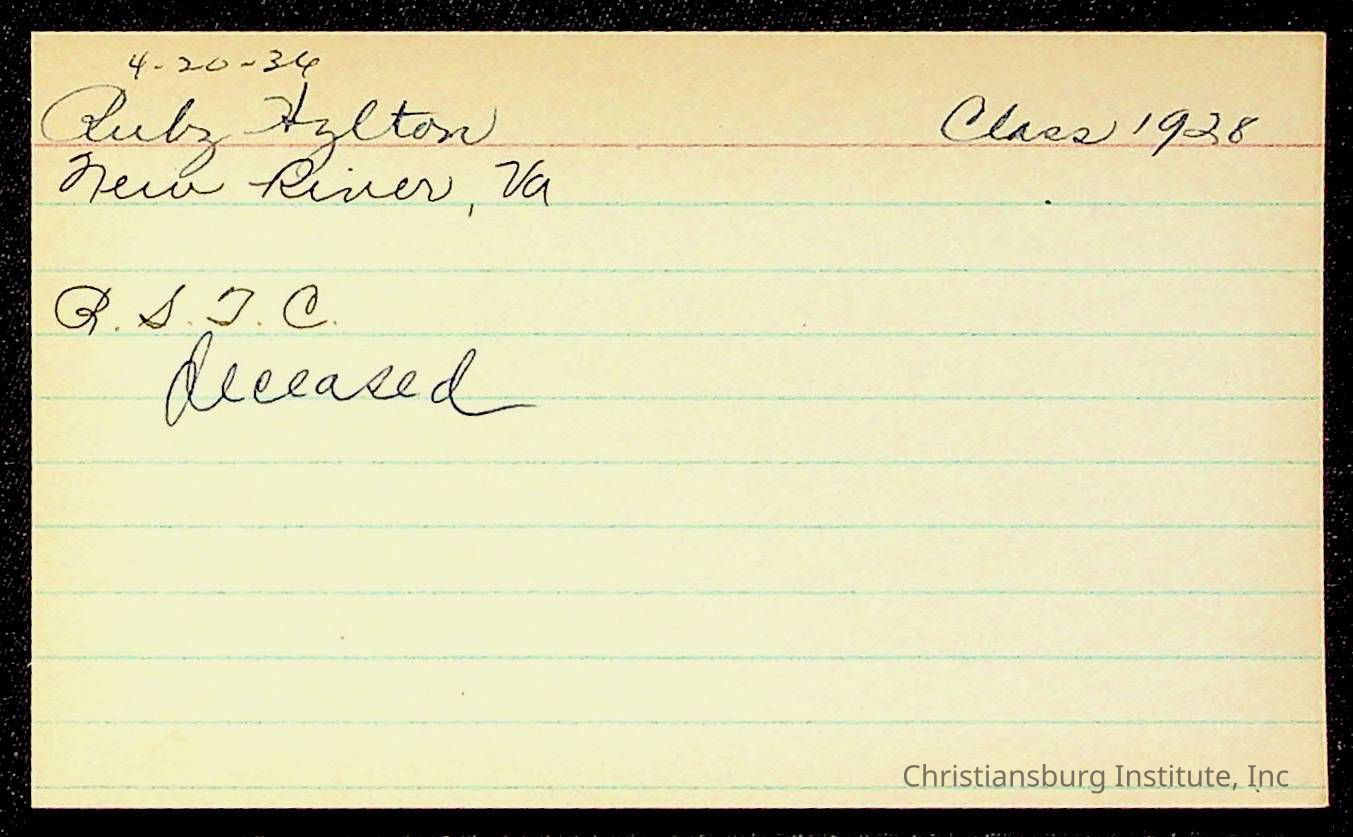 4-20-36
Ruby Hylton Class 1928
New River, Va
R. S. T. C.
deceased
Christiansburg Institute, Inc